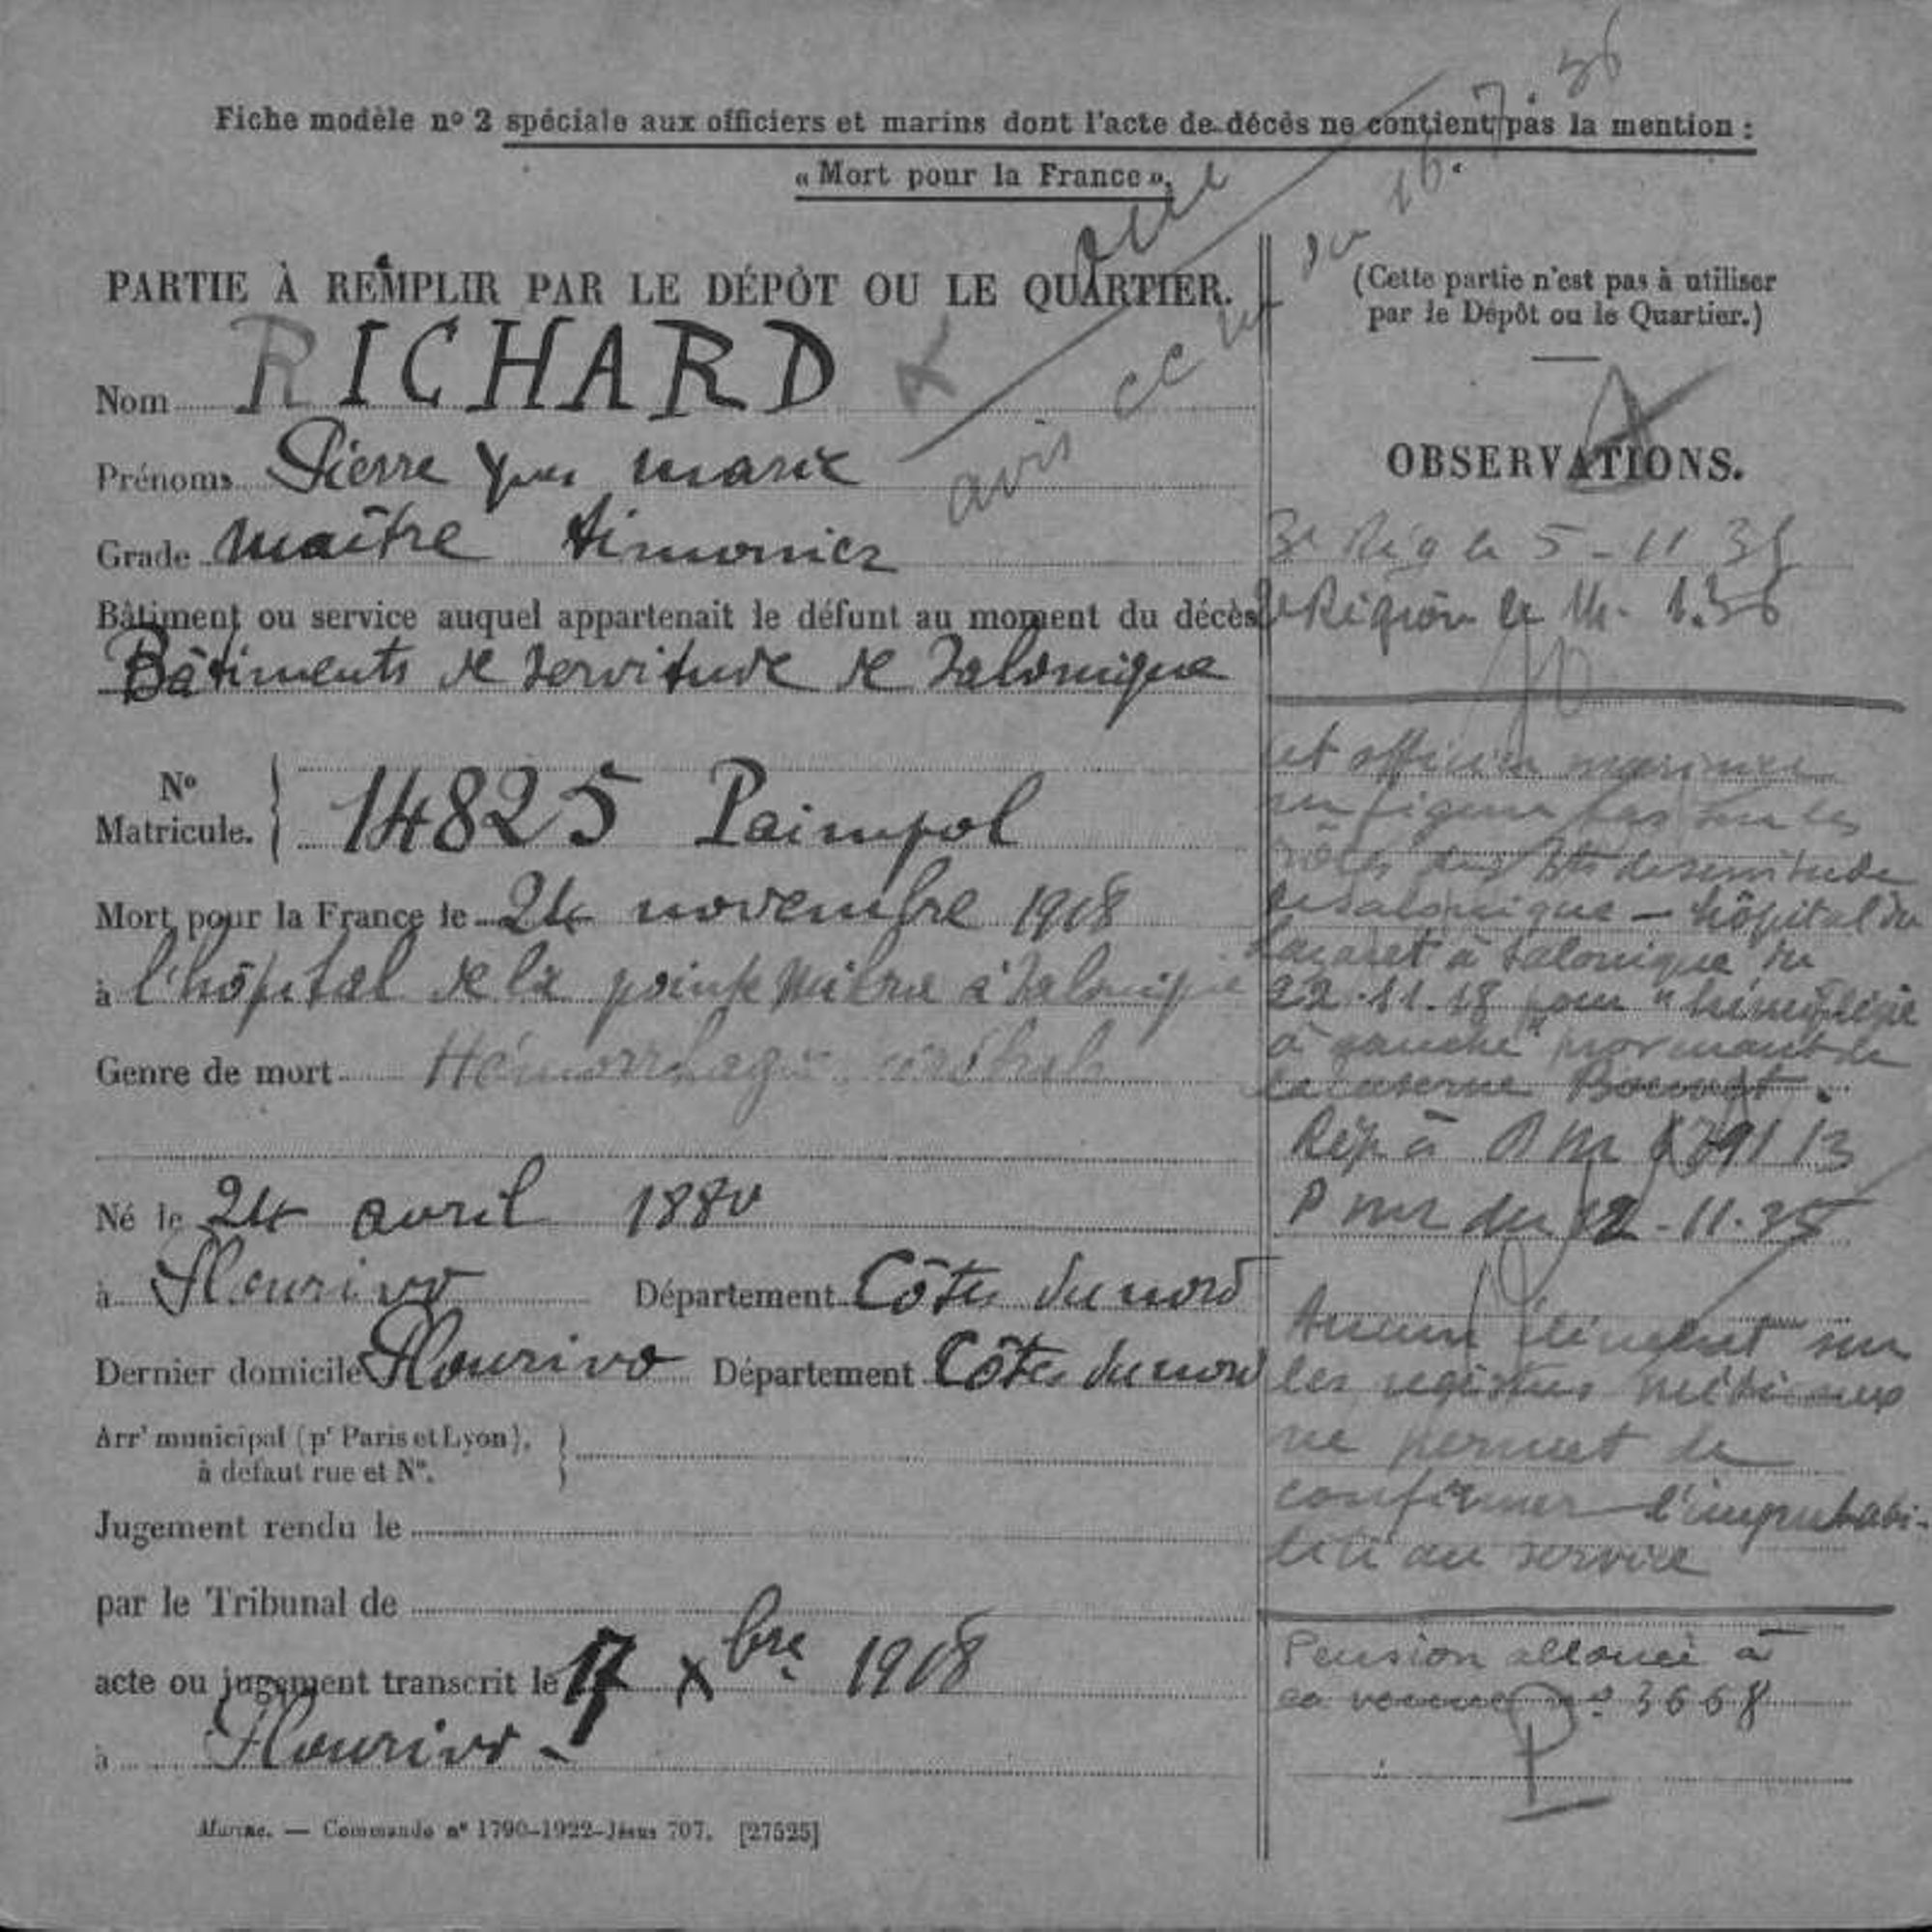 Fiche modèle nº 2 spéciale aux officiers et marins dont l'acte de décès ne contient pas la mention :
« Mort pour la France ».
avis du 16.7.36
PARTIE À REMPLIR PAR LE DÉPÔT OU LE QUARTIER.
Nom RICHARD
Prénoms Pierre Yves Marie
Grade maître timonier
Bâtiment ou service auquel appartenait le défunt au moment du décès
Bâtiments de servitude de Salonique
Nº Matricule. 14825 Paimpol
Mort pour la France le 24 novembre 1918
à l'hôpital de la pointe à Salonique
Genre de mort Hémorrhagie cérébrale
Né le 24 avril 1880
à Plourivo Département Côtes du nord
Dernier domicile Plourivo Département Côtes du nord
Arrt municipal (pr Paris et Lyon),
à défaut rue et Nº.
Jugement rendu le
par le Tribunal de
acte ou jugement transcrit le 17 Xbre 1918
à Plourivo
Marine. — Commande nº 1790-1922-Jésus 707. [27525]
(Cette partie n'est pas à utiliser
par le Dépôt ou le Quartier.)
OBSERVATIONS.
3e Rég le 5-11 35
Région le 14.1.36
et officier marinier
ne figure pas sur les
rôles des Bts de servitude
de Salonique — hôpital du
Lazaret à Salonique du
22.11.18 pour "hémiplégie
à gauche"
la caserne
Rép à
du 12-11-35
Aucun élément sur
les registres médicaux
ne permet de
confirmer l'imputabi-
lité au service
Pension allouée à
sa veuve nº 3668